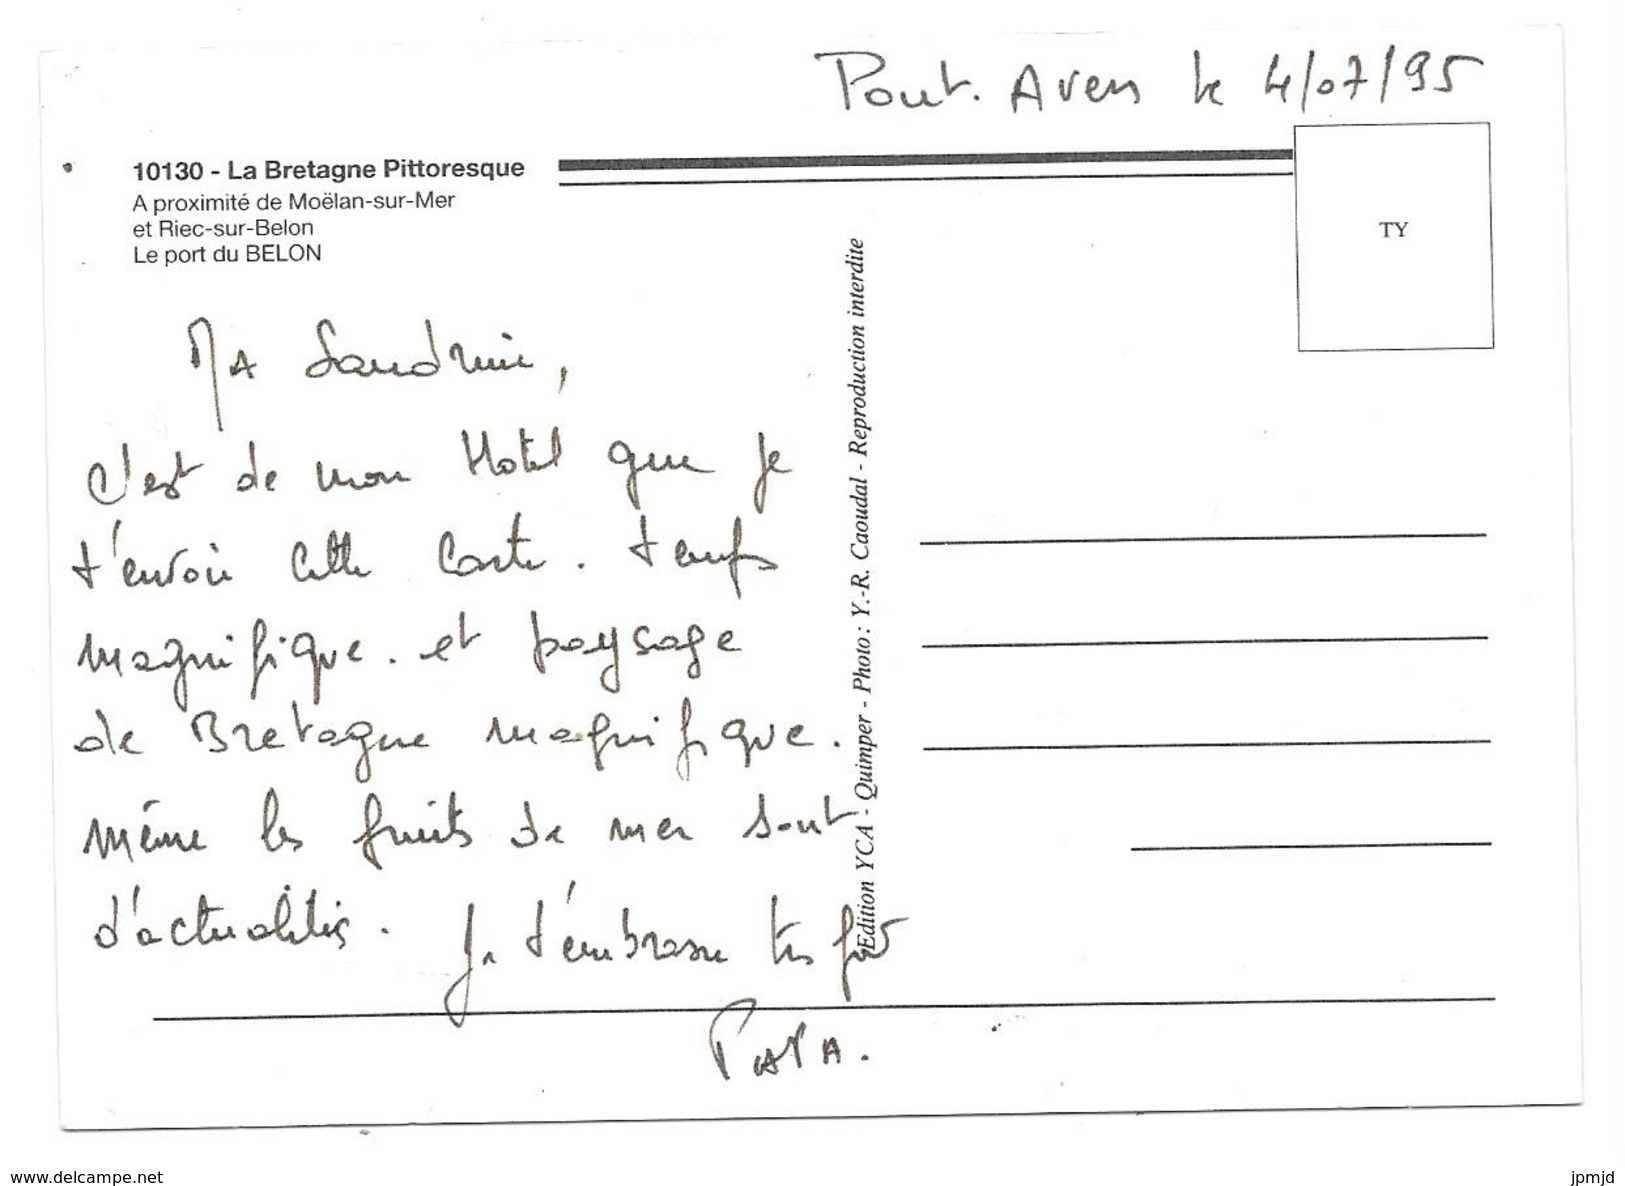 Pont. Aven le 4/07/95
10130 - La Bretagne Pittoresque
A proximité de Moëlan-sur-Mer
et Riec-sur-Belon
Le port du BELON
TY
MA Sandrine,
C'est de mon Hotel que je
t'envoie cette carte. temps
magnifique. et paysage
de Bretagne magnifique.
même les fruits de mer sont
d'actualités. Je t'embrasse très fort
PAPA.
Edition YCA - Quimper - Photo: Y.-R. Caoudal - Reproduction interdite
www.delcampe.net
jpmjd